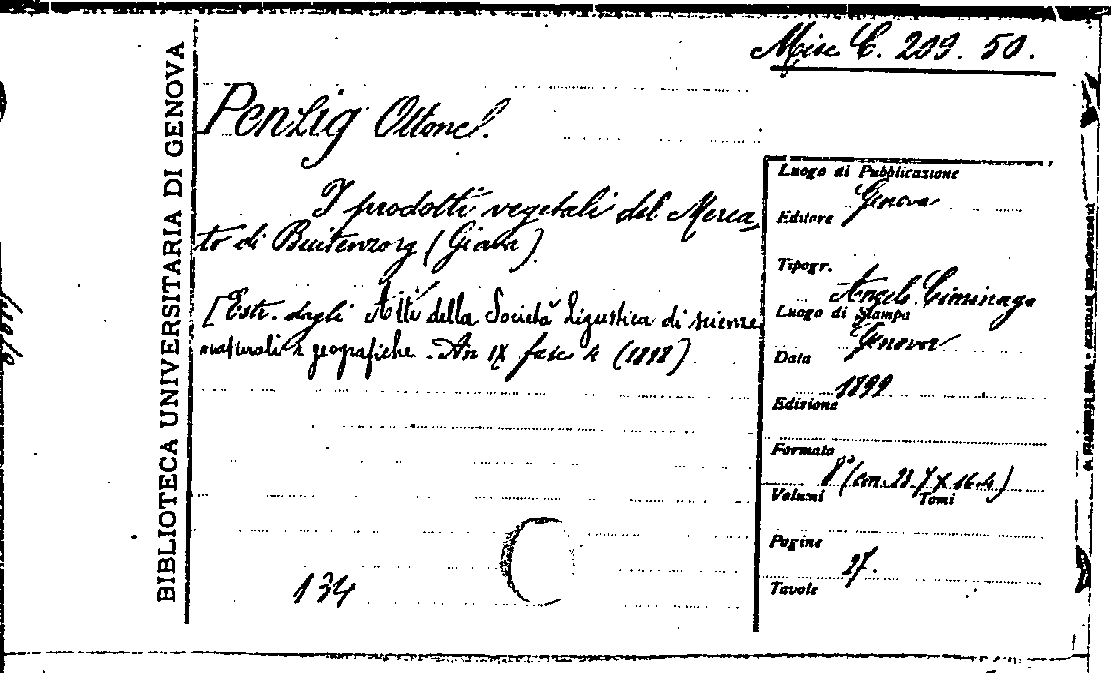 Misc C. 209. 50.
BIBLIOTECA UNIVERSITARIA DI GENOVA
Penzig Ottone.
I prodotti vegetali del Merca
to di Buitenzorg (Giava)
[Estr. dagli Atti della Società Ligustica di scienze
naturali e geografiche. An IX fasc 4 (1898)
134
Luogo di Pubblicazione
Genova
Editore
Tipogr.
Angelo Ciminago
Luogo di Stampa
Genova
Data
1899
Edizione
Formato
8° (cm. 23.7 x 16.4)
Volumi Tomi
Pagine
27.
Tavole